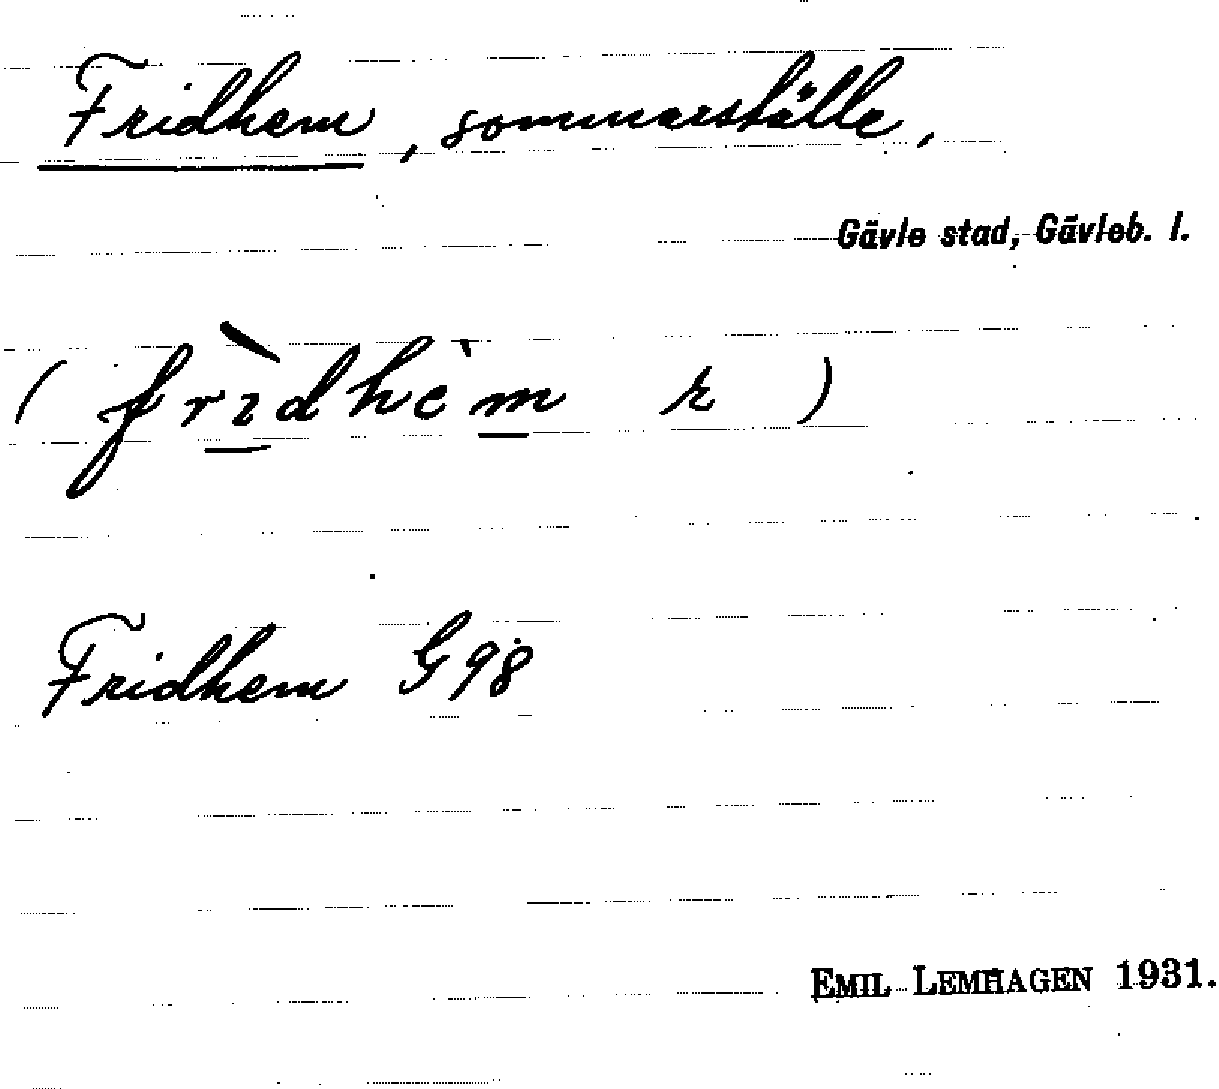 Fridhem, sommarställe,
Gävle stad, Gävleb. l.
(frìdhèm r)
Fridhem G98
EMIL LEMHAGEN 1931.